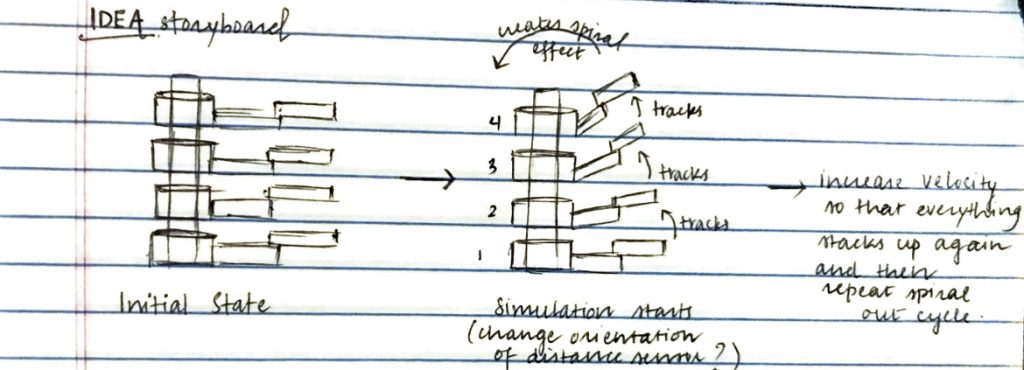 IDEA storyboard
creates spiral
effect
4
tracks
3
tracks
2
tracks
1
increase velocity
so that everything
stacks up again
and then
repeat spiral
out cycle.
Initial State
Simulation starts
(change orientation
of distance sensor?)